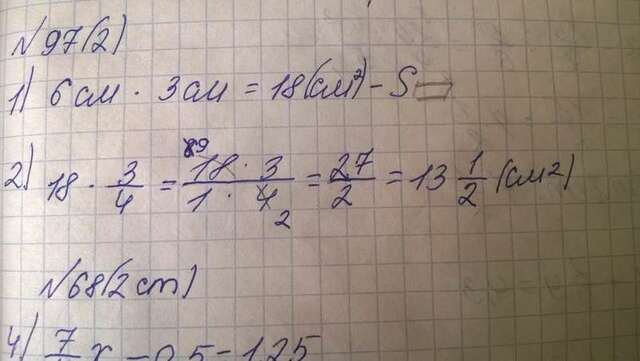 №97(2)
1) 6см · 3см = 18(см²) - S
2) 18 · 3/4 = 18 · 3 / 1 · 4 = 27/2 = 13 1/2 (см²)
9
2
№68(2 ст)
4) 7 x - 0,5 = 1,25